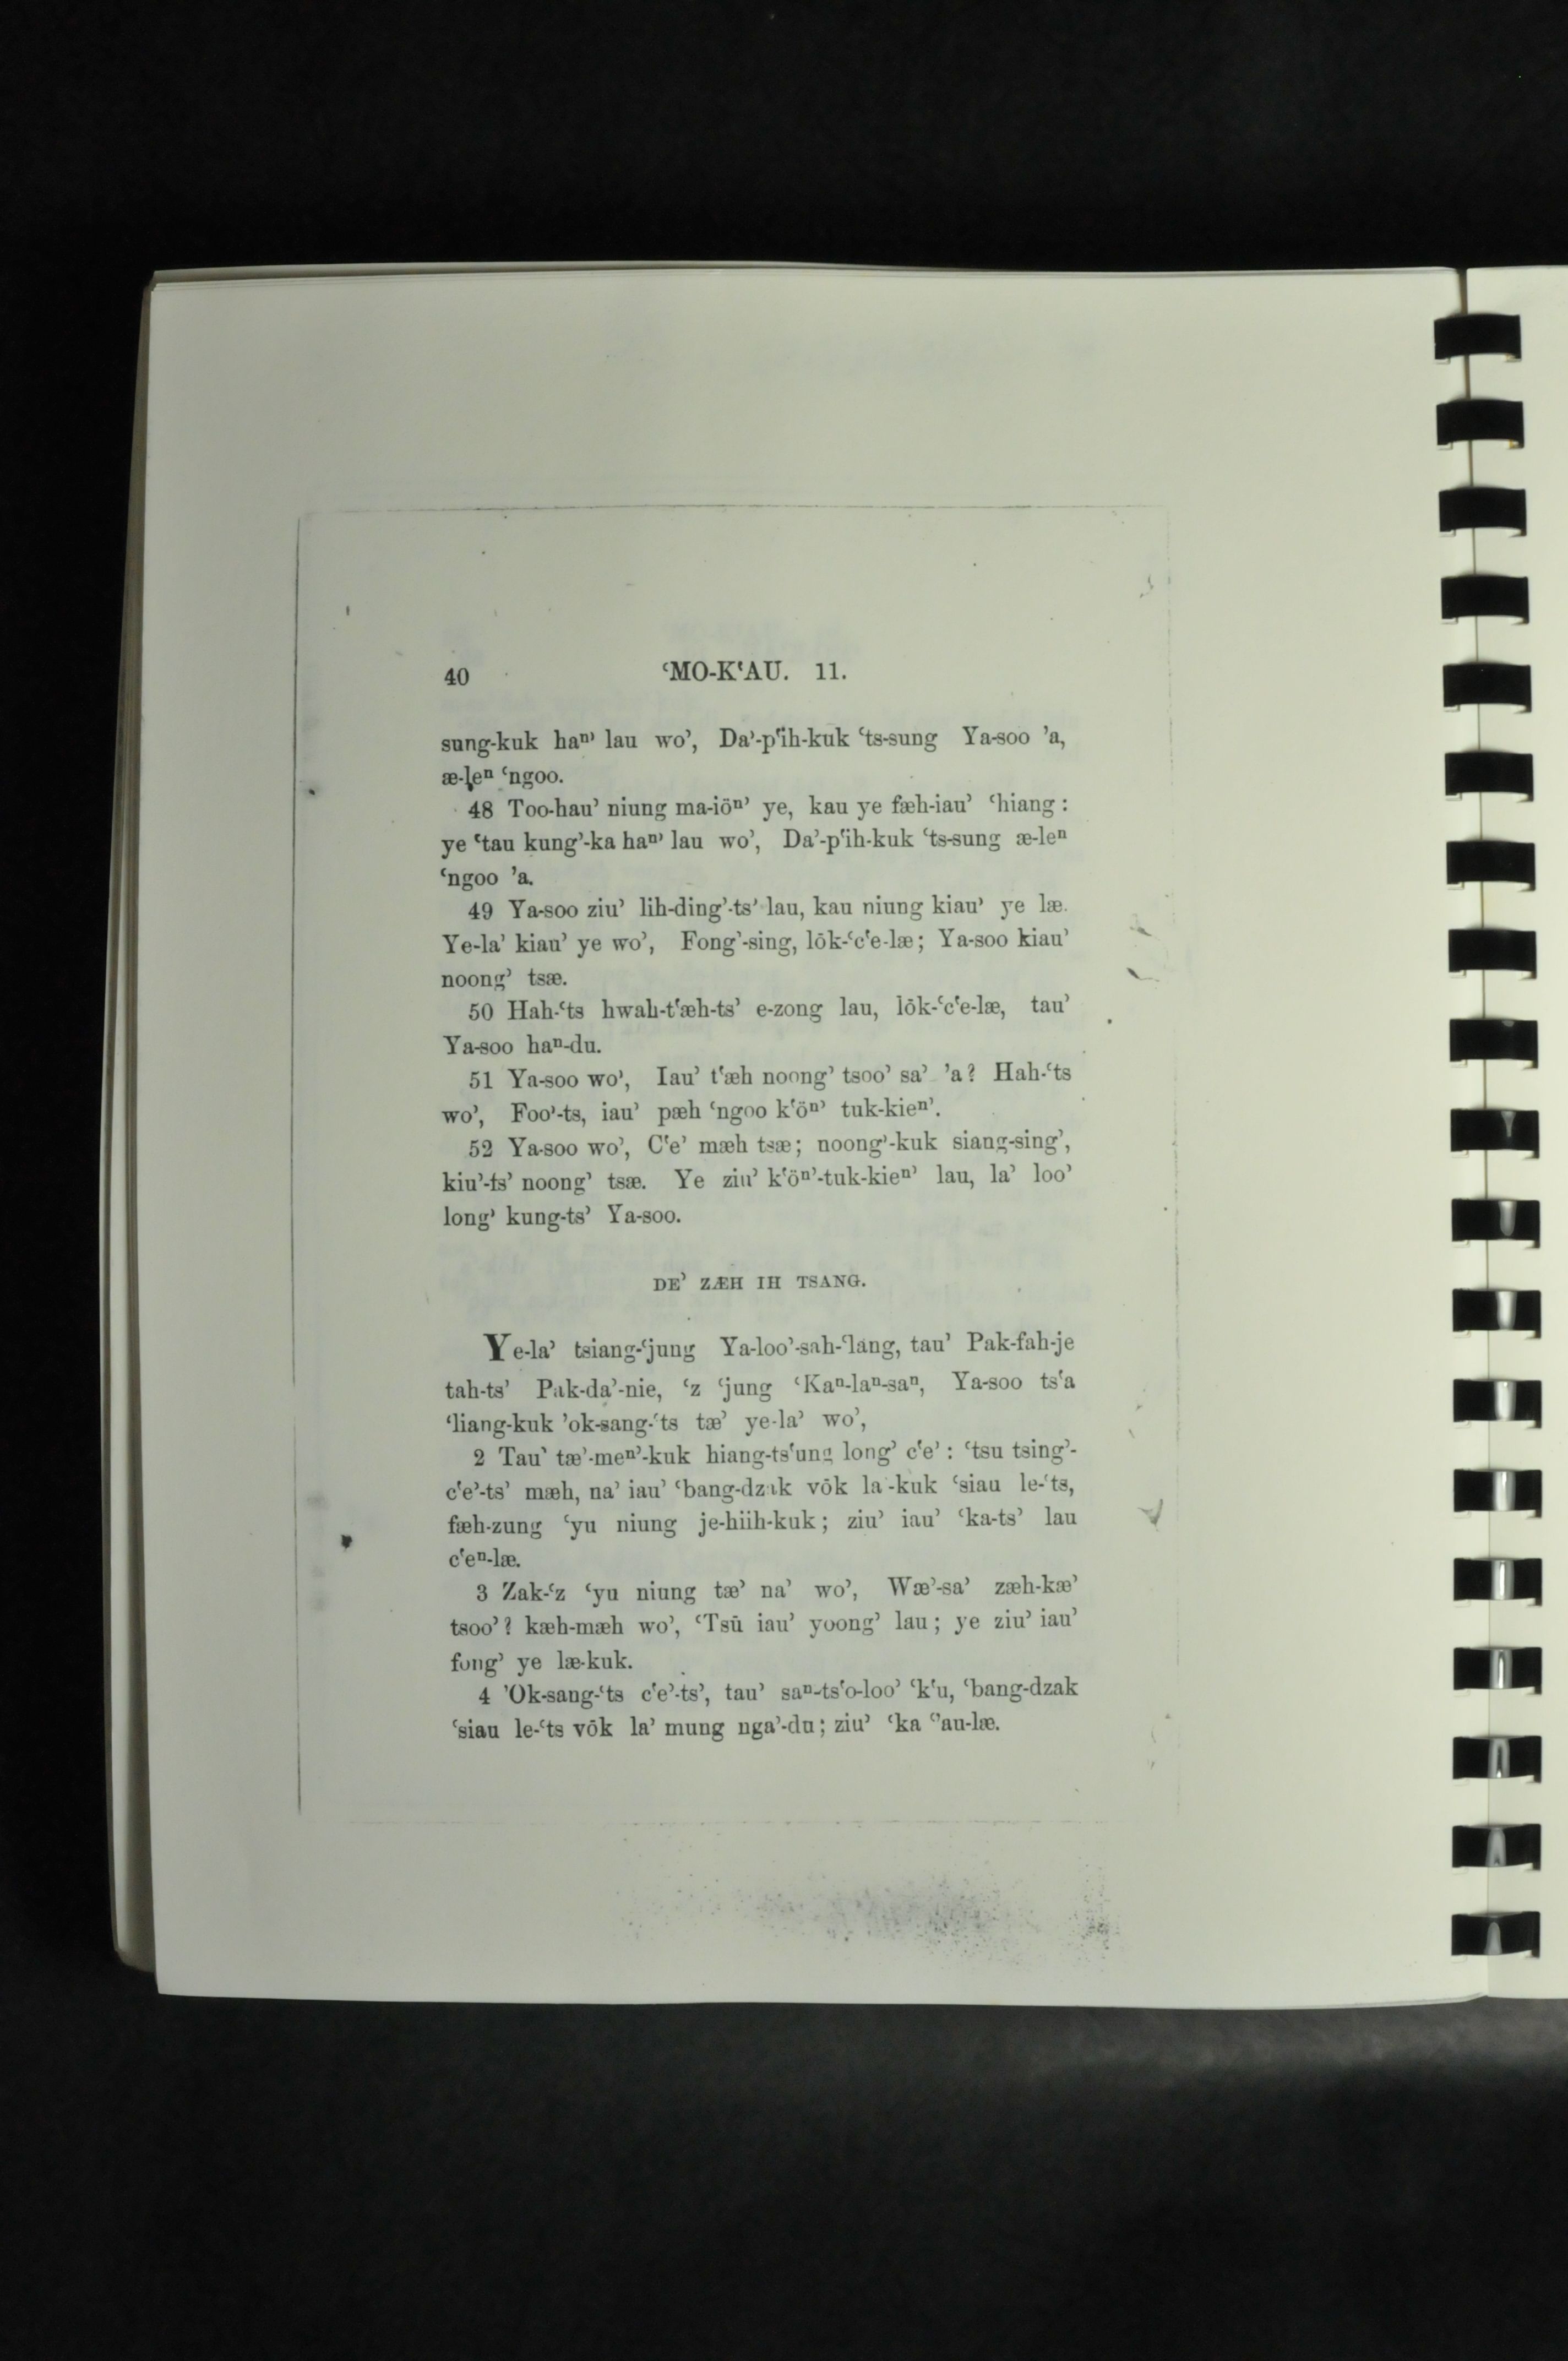 40 ‘MO-K‘AU. 11.
sung-kuk haⁿ’ lau wo’, Da’-p‘ih-kuk ‘ts-sung Ya-soo ’a,
æ-leⁿ ‘ngoo.
48 Too-hau’ niung ma-iöⁿ’ ye, kau ye fæh-iau’ ‘hiang :
ye ‘tau kung’-ka haⁿ’ lau wo’, Da’-p‘ih-kuk ‘ts-sung æ-leⁿ
‘ngoo ’a.
49 Ya-soo ziu’ lih-ding’-ts’ lau, kau niung kiau’ ye læ.
Ye-la’ kiau’ ye wo’, Fong’-sing, lōk-‘c‘e-læ; Ya-soo kiau’
noong’ tsæ.
50 Hah-‘ts hwah-t‘æh-ts’ e-zong lau, lōk-‘c‘e-læ, tau’
Ya-soo haⁿ-du.
51 Ya-soo wo’, Iau’ t‘æh noong’ tsoo’ sa’ ’a? Hah-‘ts
wo’, Foo’-ts, iau’ pæh ‘ngoo k‘öⁿ’ tuk-kieⁿ’.
52 Ya-soo wo’, C‘e’ mæh tsæ; noong’-kuk siang-sing’,
kiu’-ts’ noong’ tsæ. Ye ziu’ k‘öⁿ’-tuk-kieⁿ’ lau, la’ loo’
long’ kung-ts’ Ya-soo.
DE’ ZÆH IH TSANG.
Ye-la’ tsiang-‘jung Ya-loo’-sah-‘lang, tau’ Pak-fah-je
tah-ts’ Pak-da’-nie, ‘z ‘jung ‘Kaⁿ-laⁿ-saⁿ, Ya-soo ts‘a
‘liang-kuk ’ok-sang-‘ts tæ’ ye-la’ wo’,
2 Tau’ tæ’-meⁿ’-kuk hiang-ts‘ung long’ c‘e’ : ‘tsu tsing’-
c‘e’-ts’ mæh, na’ iau’ ‘bang-dzak vōk la’-kuk ‘siau le-‘ts,
fæh-zung ‘yu niung je-hiih-kuk; ziu’ iau’ ‘ka-ts’ lau
c‘eⁿ-læ.
3 Zak-‘z ‘yu niung tæ’ na’ wo’, Wæ’-sa’ zæh-kæ’
tsoo’? kæh-mæh wo’, ‘Tsū iau’ yoong’ lau; ye ziu’ iau’
fong’ ye læ-kuk.
4 ’Ok-sang-‘ts c‘e’-ts’, tau’ saⁿ-ts‘o-loo’ ‘k‘u, ‘bang-dzak
‘siau le-‘ts vōk la’ mung nga’-du; ziu’ ‘ka ‘’au-læ.